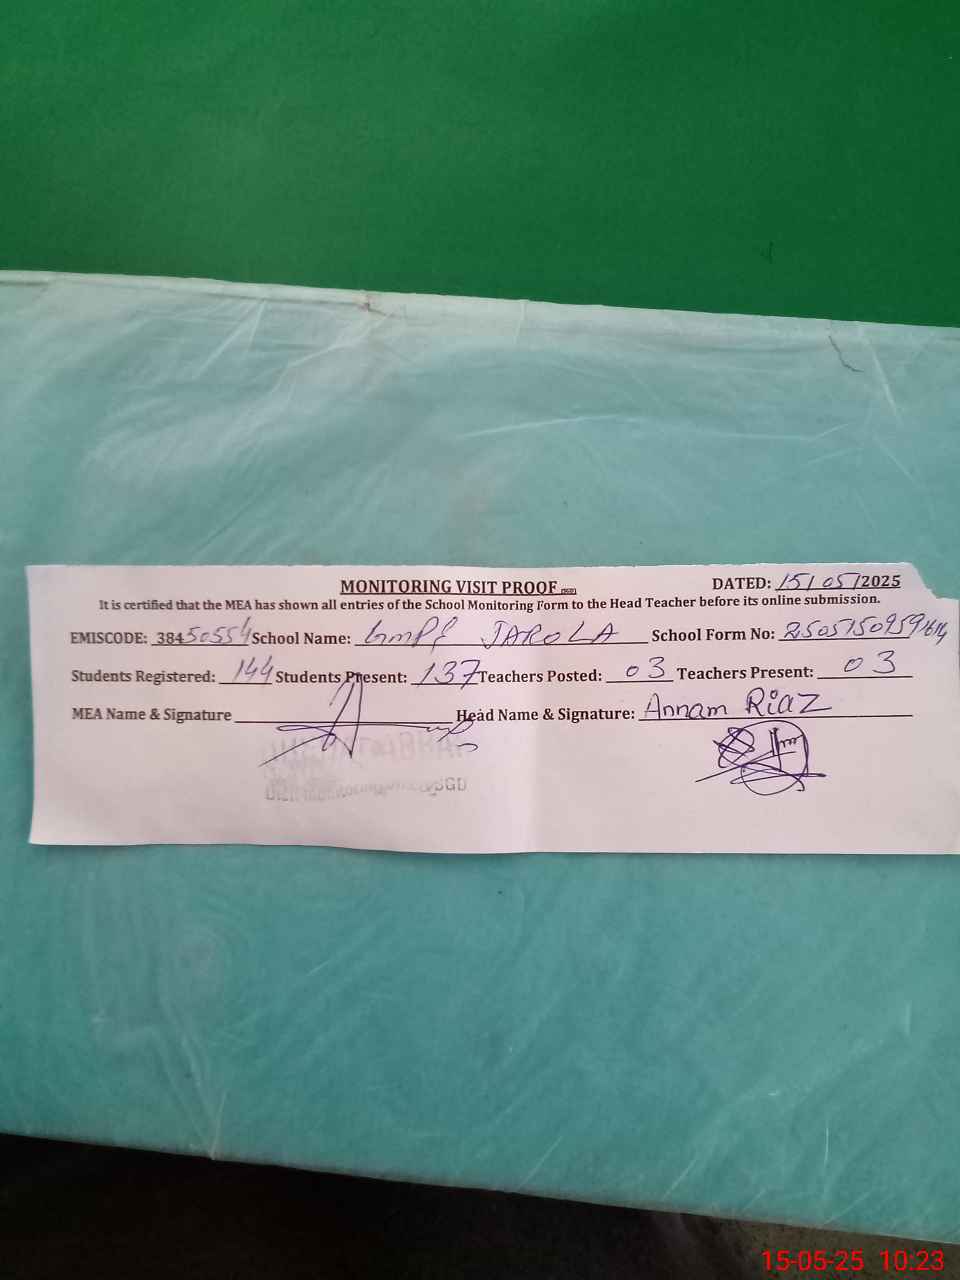 MONITORING VISIT PROOF (SGD) DATED: 15/05/2025
It is certified that the MEA has shown all entries of the School Monitoring Form to the Head Teacher before its online submission.
EMISCODE: 38450554 School Name: JAROLA School Form No:
Students Registered: 144 Students Present: 137 Teachers Posted: 03 Teachers Present: 03
MEA Name & Signature Head Name & Signature: Annam RiaZ
SGD
15-05-25 10:23